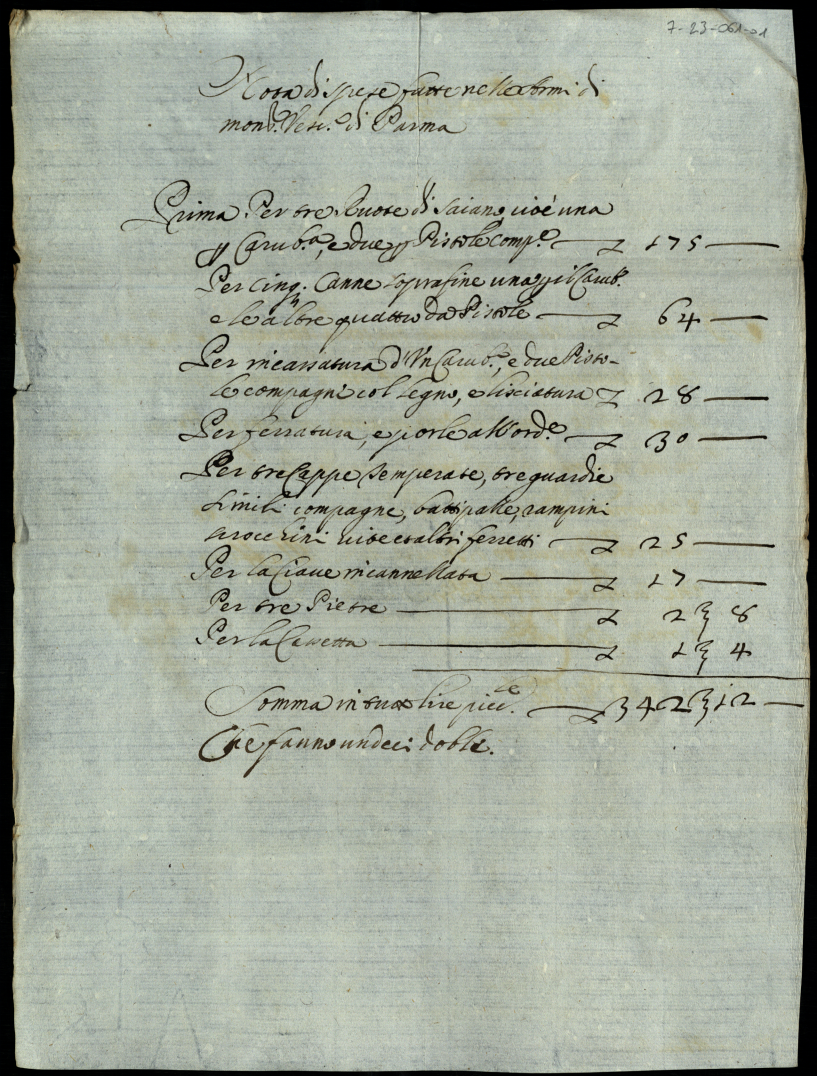 7-23-061-01
Nota di spese fatte nelle Armi di
mons.r Vesc.o di Parma
Prima. Per tre Ruote di Saiano, cioè una
p Carub.a, e due p Pistole comp.e — L 175 —
Per cinq. Canne soprafine una p il Carub.
e le altre quattro da Pistole — L 64 —
Per incassatura d'Un Carub.a, e due Pisto-
le compagni col legno, e lisciatura L 28 —
Per ferratura, e porle all'ord.e — L 30 —
Per tre Cappe temperate, tre guardie
simili compagne, battipalle, rampini
cioè et altri ferretti — L 25 —
Per la Ciave incannellata — L 17 —
Per tre Pietre — L 2 : 8
Per la Cassetta — L 1 : 4
Somma in tutto lire picc.le — L 342 : 12 —
Che fanno undeci doble.